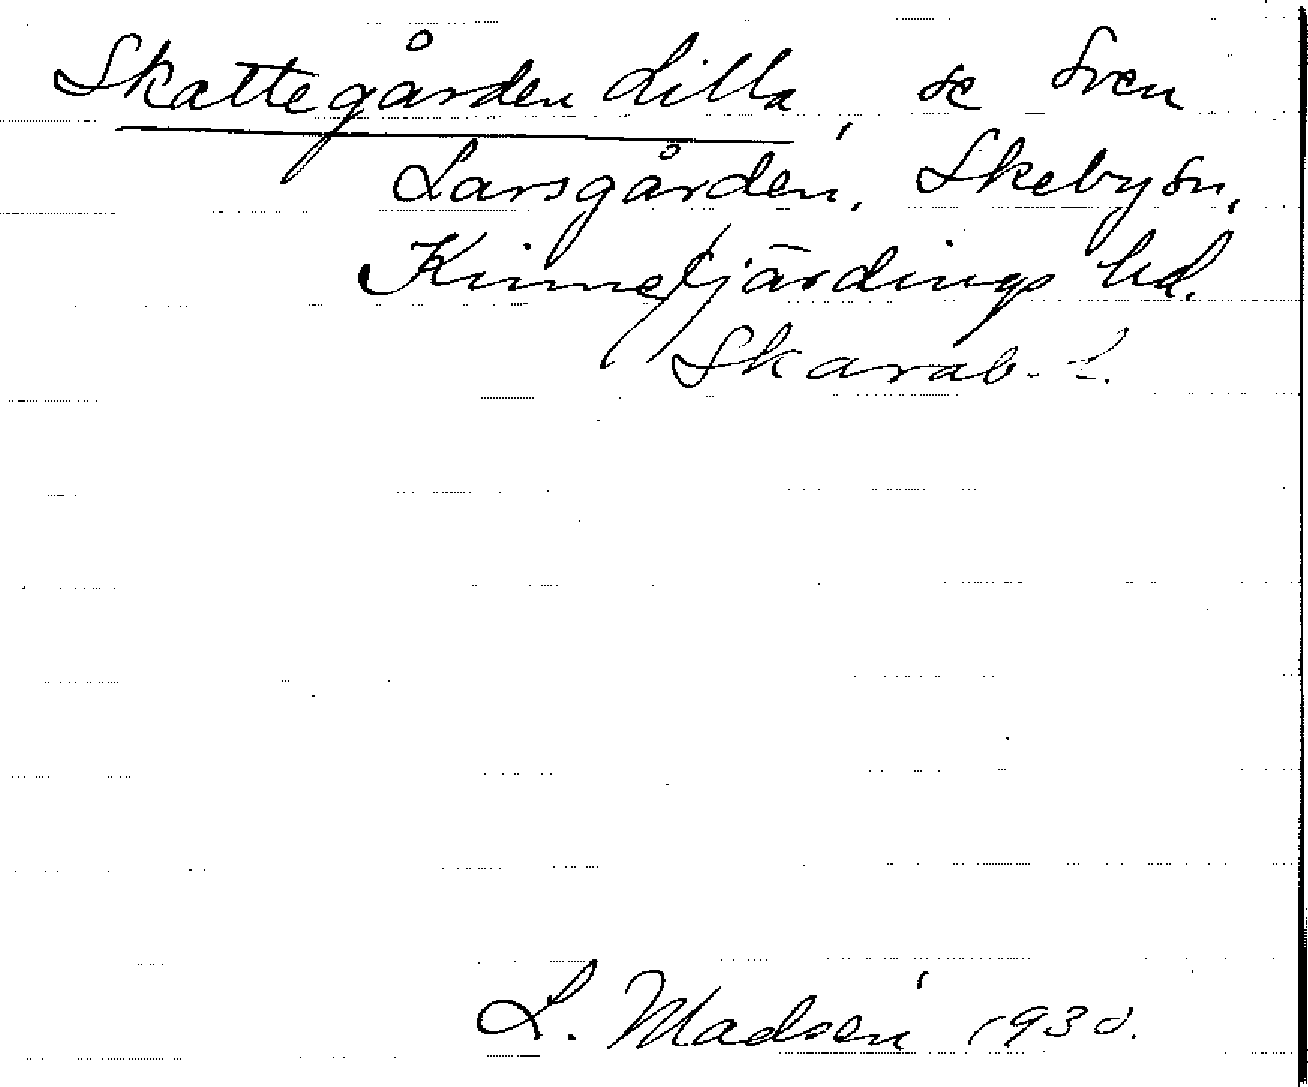 Skattegården Lilla, se Sven
Larsgården, Skeby sn,
Kinnefjärdings hd.
Skarab. L.
L. Madsén 1930.